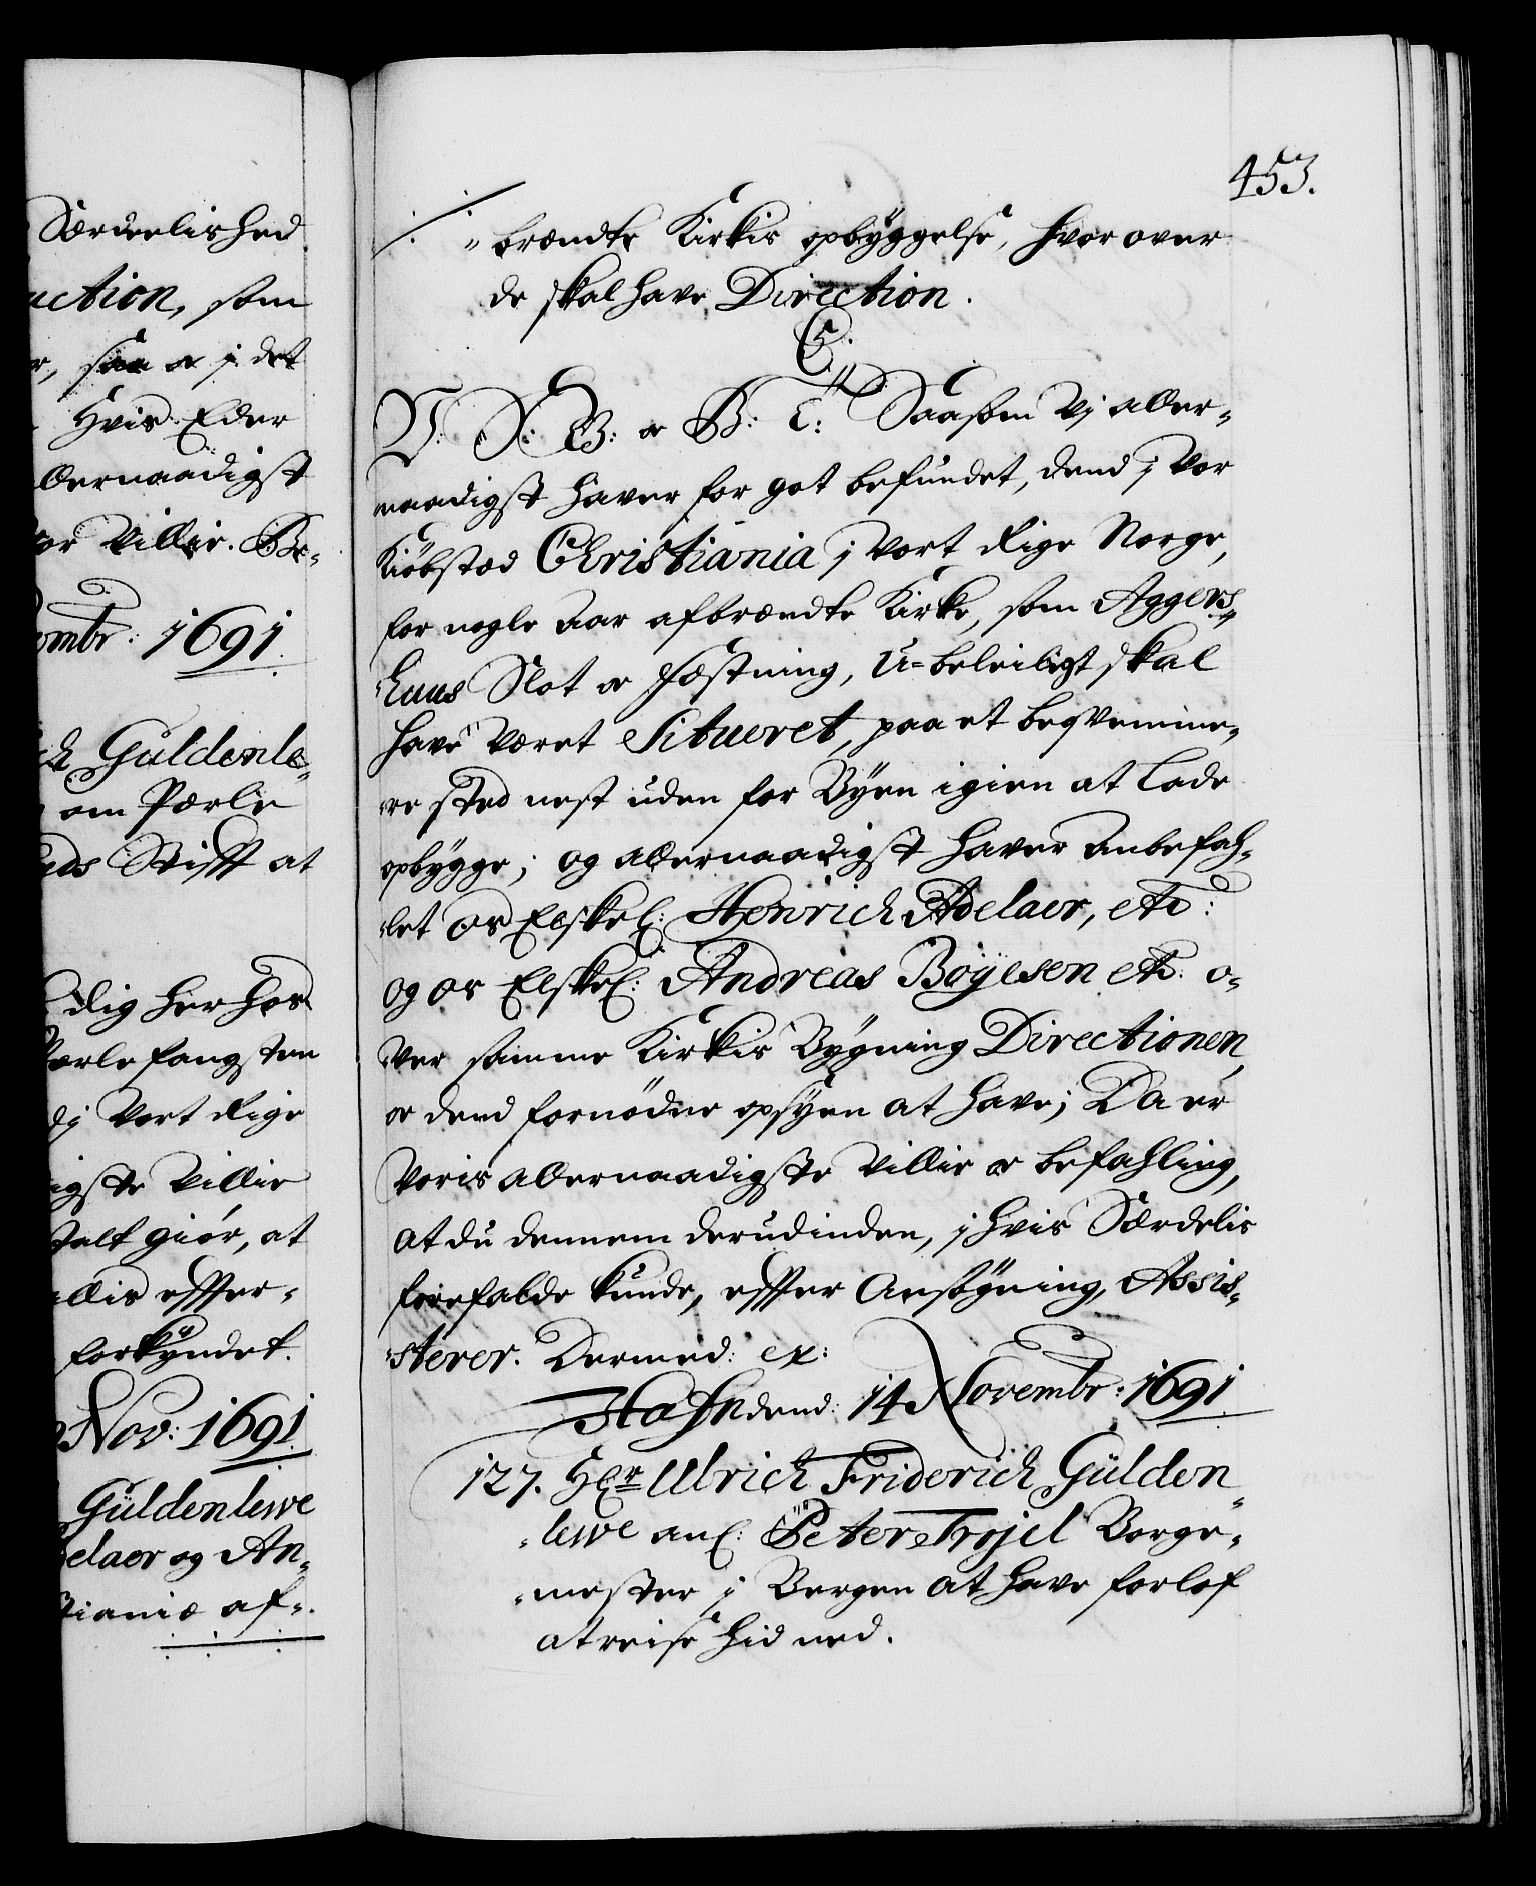 Særdeelished
uction, som
r, saa oc j det
Hvis Eder
allernaadigst
vor Villie. Be-
ombr: 1691.
ich Guldenle-
om Pærle
uds Stifft at
dig her hos
Pærlefangsten
dj Vort Rige
igste Villie
stalt giør, at
allis effter-
forkyndet.
Nov: 1691.
Güldenlewe
elaer og An-
stianiæ af-
453.
-brændte Kirkis opbyggelse, hvor over
de skal have Direction.
C5.
V: S: G: oc B: T: Saasom Vj aller-
naadigst haver for got befundet, dend j Vor
Kiøbstad Christiania j Vort Rige Norge,
for nogle Aar afbrændte Kirke, som Aggers-
-huus Slot oc Fæstning, U-beleiligt skal
have været Situeret, paa et beqvemme-
-re sted nest uden for Byen igien at lade
opbygge; og allernaadigst haver anbefah-
-let os Elskel: Henrich Adelaer, etc:
og os Elskel: Andreas Bøyesen etc: o-
-ver samme Kirkis Bygning Directionen,
oc dend fornødne opsyen at have; Da er
Voris allernaadigste Villie oc befahling,
at du dennem derudinden, j hvis Særdelis
forefalde kunde, effter Ansøgning, Assis-
-sterer. Dermed: ex:
Hafn dend: 14 Novembr: 1691.
127. Hr Ulrich Friderich Gülden-
-lewe anl: Peter Trojel Borge-
-mester j Bergen at have forlof
at reise hid ned.